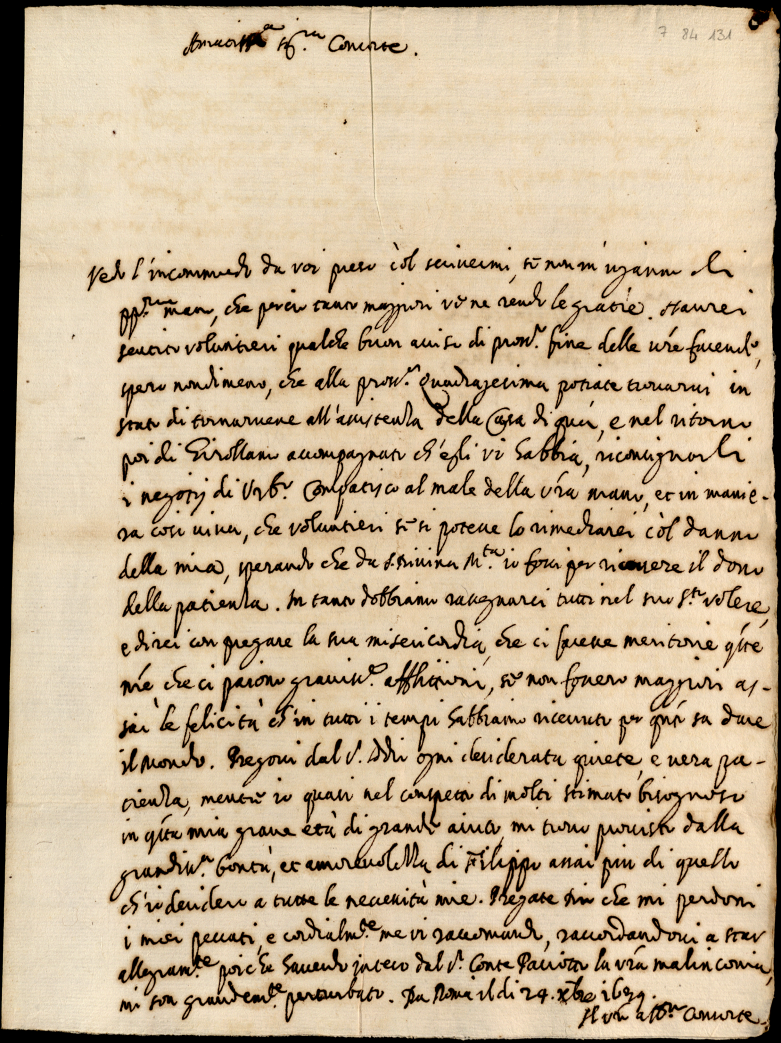 7 84 131
Sig.ra Consorte.
Vedo l'incommodo da voi preso còl scrivermi, sè non m'inganno di
pp.ria mano, che perciò tanto maggiori vè ne rendo le gratie. Haurei
sentito volontieri qualche buon auiso di pross.o fine delle vre facende,
spero nondimeno, che alla pross.a Quadragesima potiate trovarui in
stato di tornaruene all'assistenza della Casa di quà, e nel ritorno
poi di Girollamo accompagnato ch'egli vi habbia, riconsignarli
i negotij di Urb.o Compatisco al male della vra mano, et in manie-
ra così viva, che volontieri sè si potesse lo rimediarei còl danno
della mia, sperando che da S. Divina M.tà io fossi per ricevere il dono
della patienza. In tanto dobbiamo rassegnarci tutti nel suo S.to volere,
e direi con pregare la sua misericordia, che ci facesse meritorie qste
nře che ci paiono graviss.e afflittioni, sè non fossero maggiori as-
sai le felicità ch'in tutti i tempi habbiamo ricevuto per quanto sa dare
il Mondo. Pregovi dal S. Iddio ogni desiderata quiete, e vera pa-
cienza, mentre io quasi nel conspetto di molti stimato bisognoso
in qsta mia grave età di grande aiuto, mi trovo provisto dalla
grandiss.a bontà, et amorevolezza di Filippo assai più di quello
ch'io desidero a tutte le necessità mie. Pregate Dio che mi perdoni
i miei peccati, e cordialm.te me vi raccomando, raccordandovi a star
allegram.te poiche havendo inteso dal S. Conte Paciotto la vra malinconia,
mi son grandem.te perturbato. Da Roma il dì 24. Xbre 1639.
Il vro Consorte